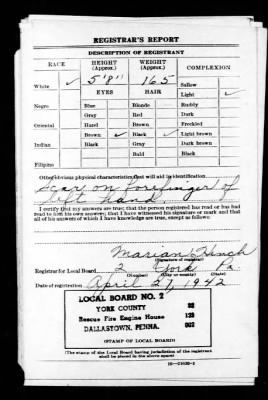 REGISTRAR'S REPORT
DESCRIPTION OF REGISTRANT
RACE HEIGHT (Approx.) WEIGHT (Approx.) COMPLEXION
White ✓ 5'8" 165 Sallow
EYES HAIR Light ✓
Negro Blue Blonde Ruddy
Gray Red Dark
Oriental Hazel Brown Freckled
Brown ✓ Black ✓ Light brown
Indian Black Gray Dark brown
Bald Black
Filipino
Other obvious physical characteristics that will aid in identification
Scar on forefinger of
left hand.
I certify that my answers are true; that the person registered has read or has had
read to him his own answers; that I have witnessed his signature or mark and that
all of his answers of which I have knowledge are true, except as follows:
Marian
(Signature of registrar)
Registrar for Local Board 2 York Pa.
(Number) (City or county) (State)
Date of registration April 27, 1942
LOCAL BOARD NO. 2
YORK COUNTY
Rescue Fire Engine House 133
DALLASTOWN, PENNA. 002
(STAMP OF LOCAL BOARD)
(The stamp of the Local Board having jurisdiction of the registrant
shall be placed in the above space.)